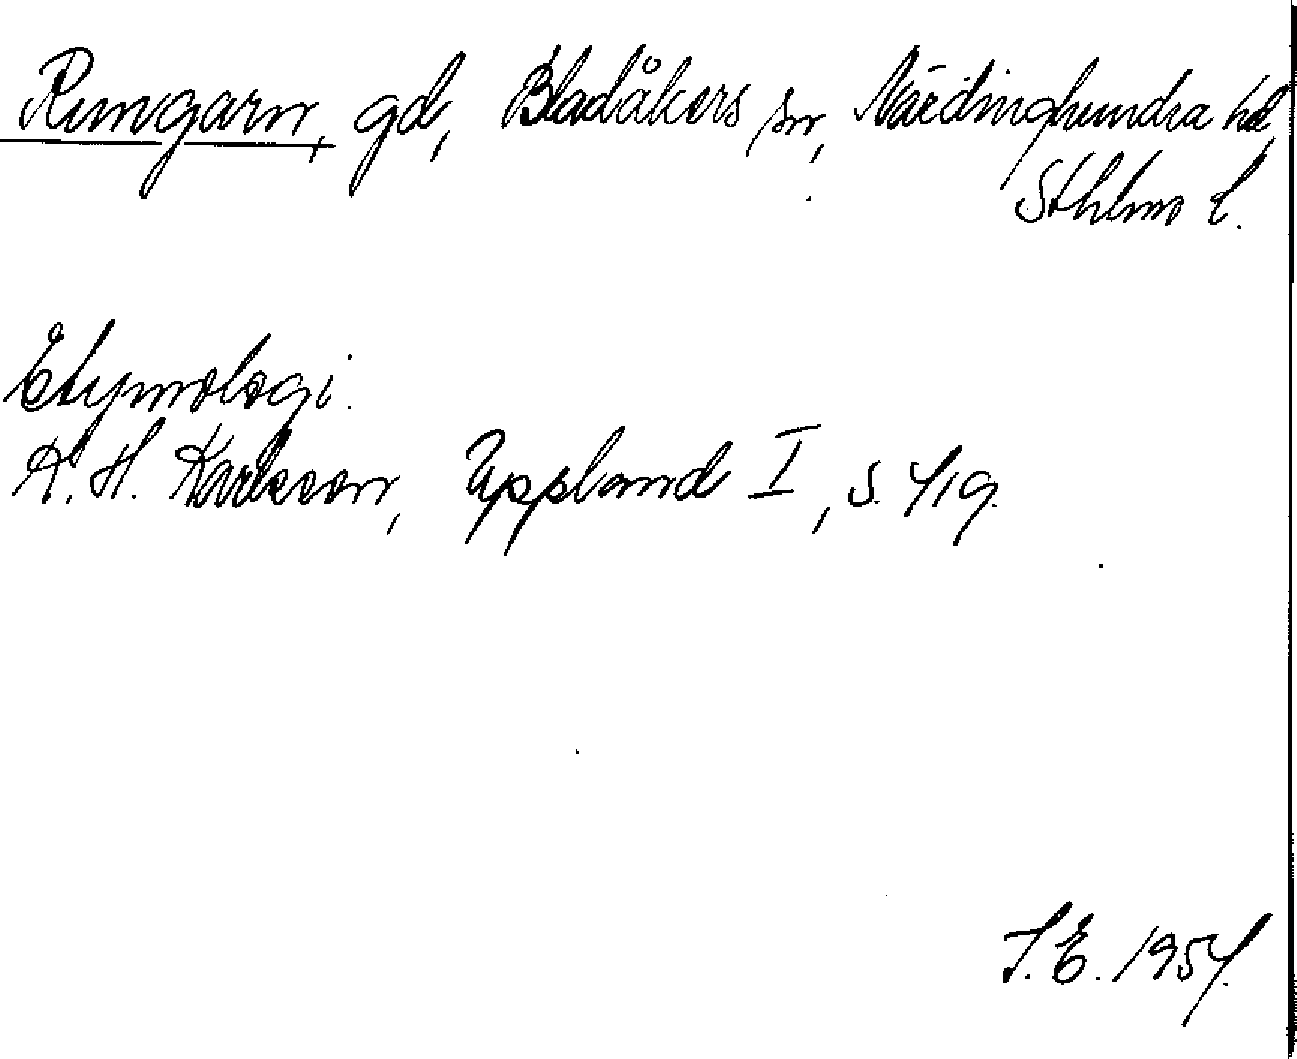 Rungarn, gd, Bladåkers sn, Närdinghundra hd,
Sthlms l.
Etymologi.
K. H. Karlsson, Uppland I, s. 419.
T. E. 1954.